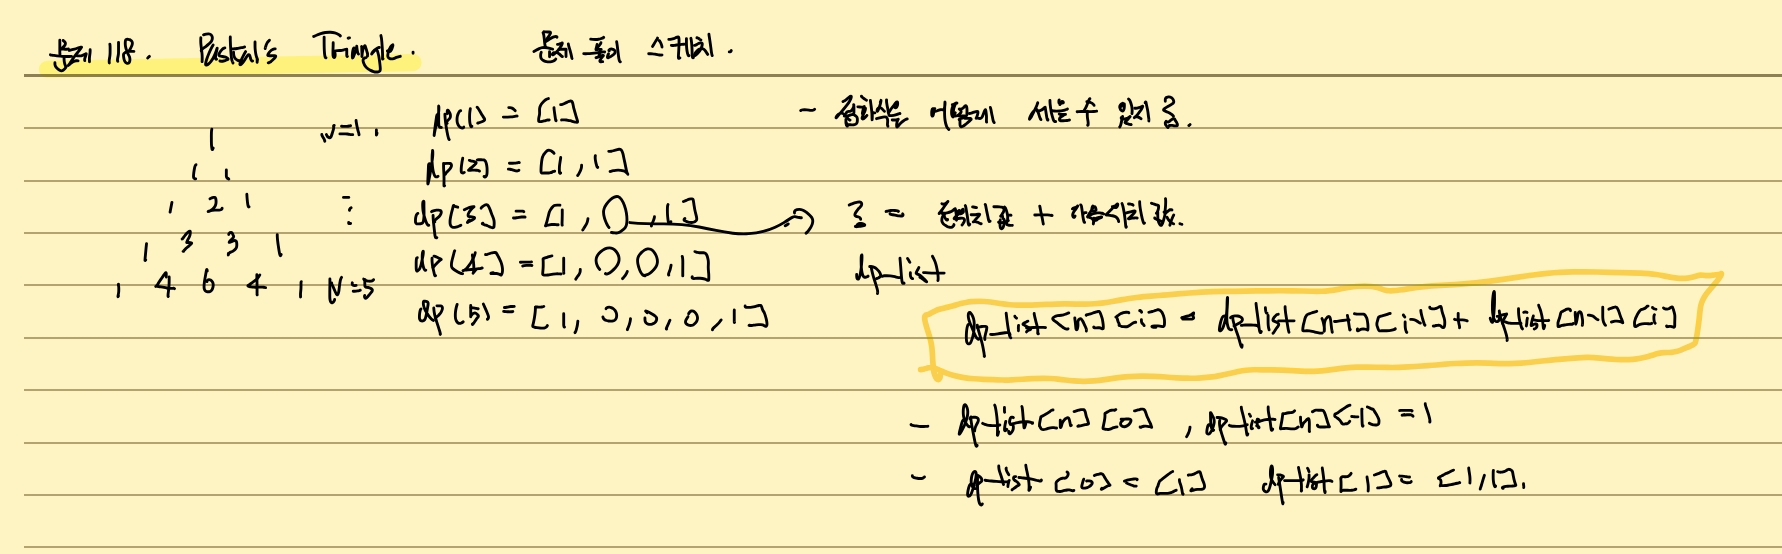 문제 118. Paskal's Triangle. 문제 풀이 스케치.
1 N=1.
1 1
1 2 1 ⋮
1 3 3 1
1 4 6 4 1 N=5
dp(1) = [1]
dp[2] = [1, 1]
dp[3] = [1, O, 1]
dp[4] = [1, 0, 0, 1]
dp(5) = [1, 0, 0, 0, 1]
- 점화식은 어떻게 세울 수 있지?
= +
dp_list
dp_list[n][i] = dp_list[n-1][i-1] + dp_list[n-1][i]
- dp_list[n][0], dp_list[n][-1] = 1
- dp_list[0] = [1] dp_list[1] = [1,1].